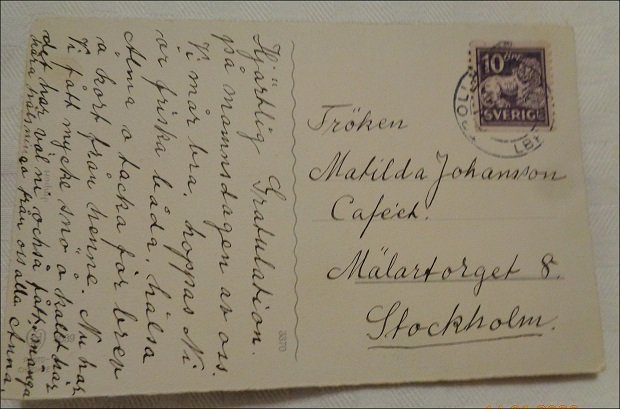 Hjärtlig Gratulation.
på namnsdagen av oss.
Vi mår bra, hoppas Ni
är friska båda, hälsa
Alma o tacka för brev
o kort från henne. Nu har
Vi fått mycke snö o kallt här
det har väl ni också fått många
kära hälsningar från oss alla Anna.
3370
10 ÖRE
SVERIGE
Fröken
Matilda Johansson
Caféet.
Mälartorget 8.
Stockholm.